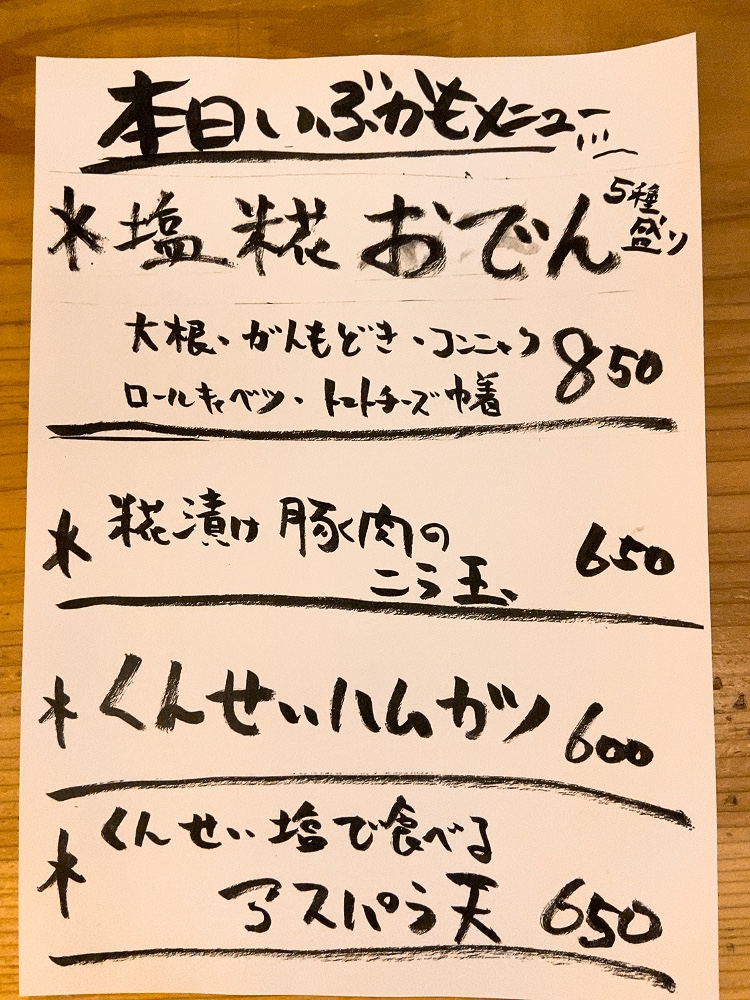 本日いぶかもメニュー
※塩糀おでん 5種盛り
大根・がんもどき・コンニャク 850
ロールキャベツ・トマトチーズ巾着
※糀漬け豚く肉の
ニラ玉 650
※くんせいハムカツ 600
※くんせい塩で食べる
アスパラ天 650